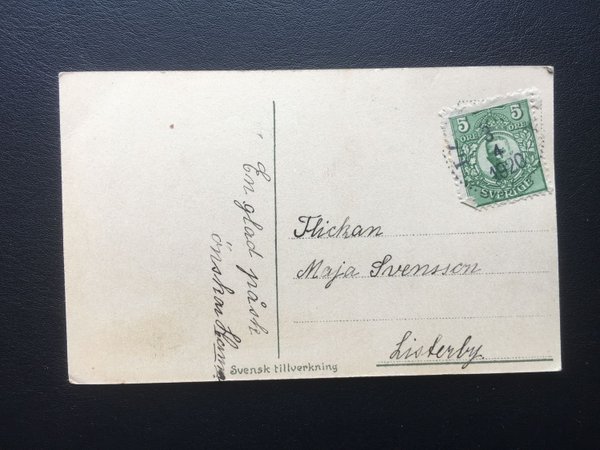 5 5
ÖRE ÖRE
3
4
1920
SVERIGE
En glad påsk
önskar
Flickan
Maja Svensson
Listerby.
Svensk tillverkning